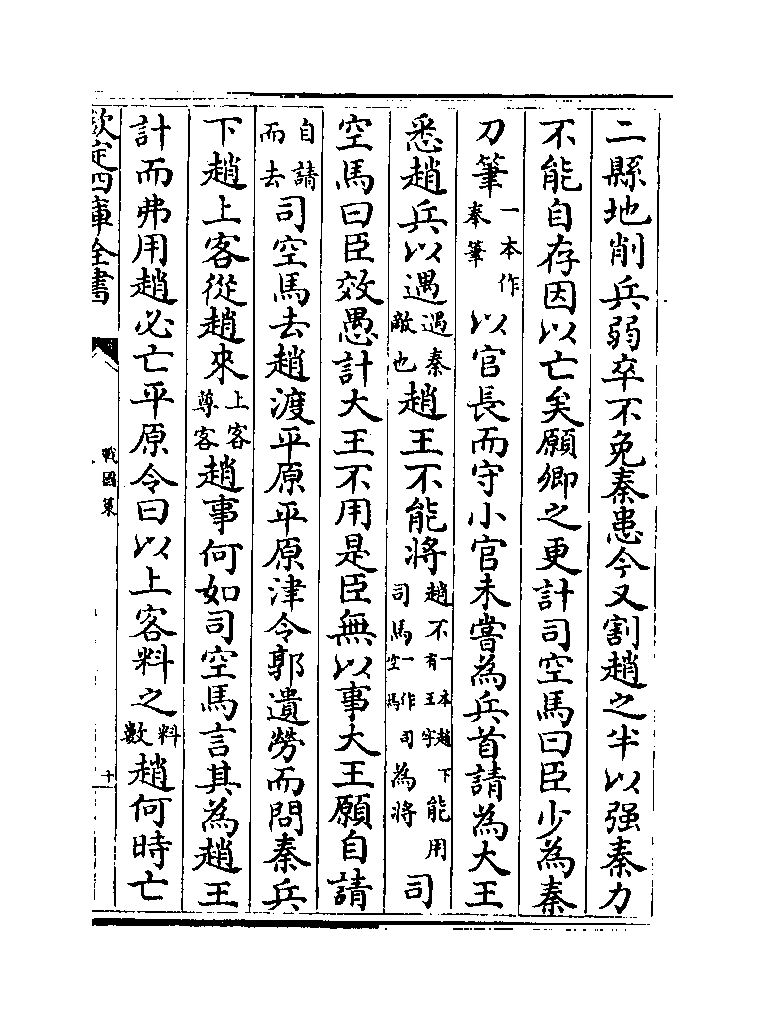 二縣地削兵弱卒不免秦患今又割趙之半以强秦力
不能自存因以亡矣願卿之更計司空馬曰臣少為秦
刀筆一本作奉筆以官長而守小官未嘗為兵首請為大王
悉趙兵以遇遇秦敵也趙王不能將趙不一本趙下有王字能用司馬一作司空馬為將司
空馬曰臣效愚計大王不用是臣無以事大王願自請
自請而去司空馬去趙渡平原平原津令郭遺勞而問秦兵
下趙上客從趙來上客尊客趙事何如司空馬言其為趙王
計而弗用趙必亡平原令曰以上客料之料數趙何時亡
欽定四庫全書
戰國策
十